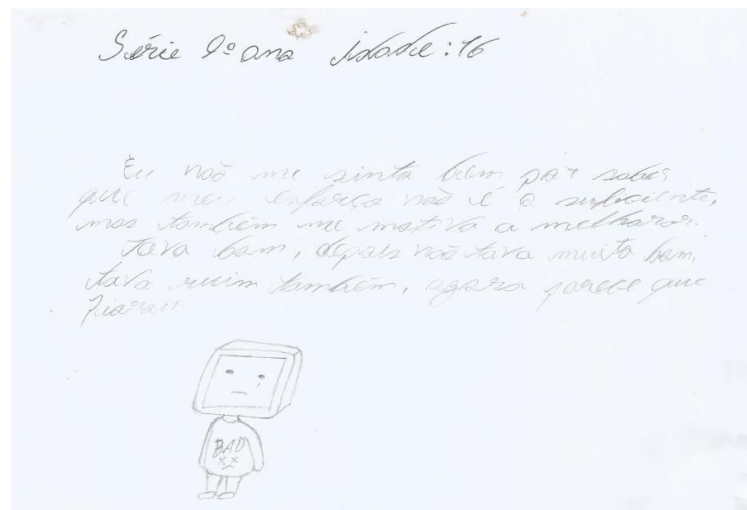 Série 9º ano Idade: 16
Eu não me sinto bem por saber
que meu esforço não é o suficiente,
mas também me motiva a melhorar.
Tava bom, depois não tava muito bom,
tava ruim também, agora parece que
piorou
BAD